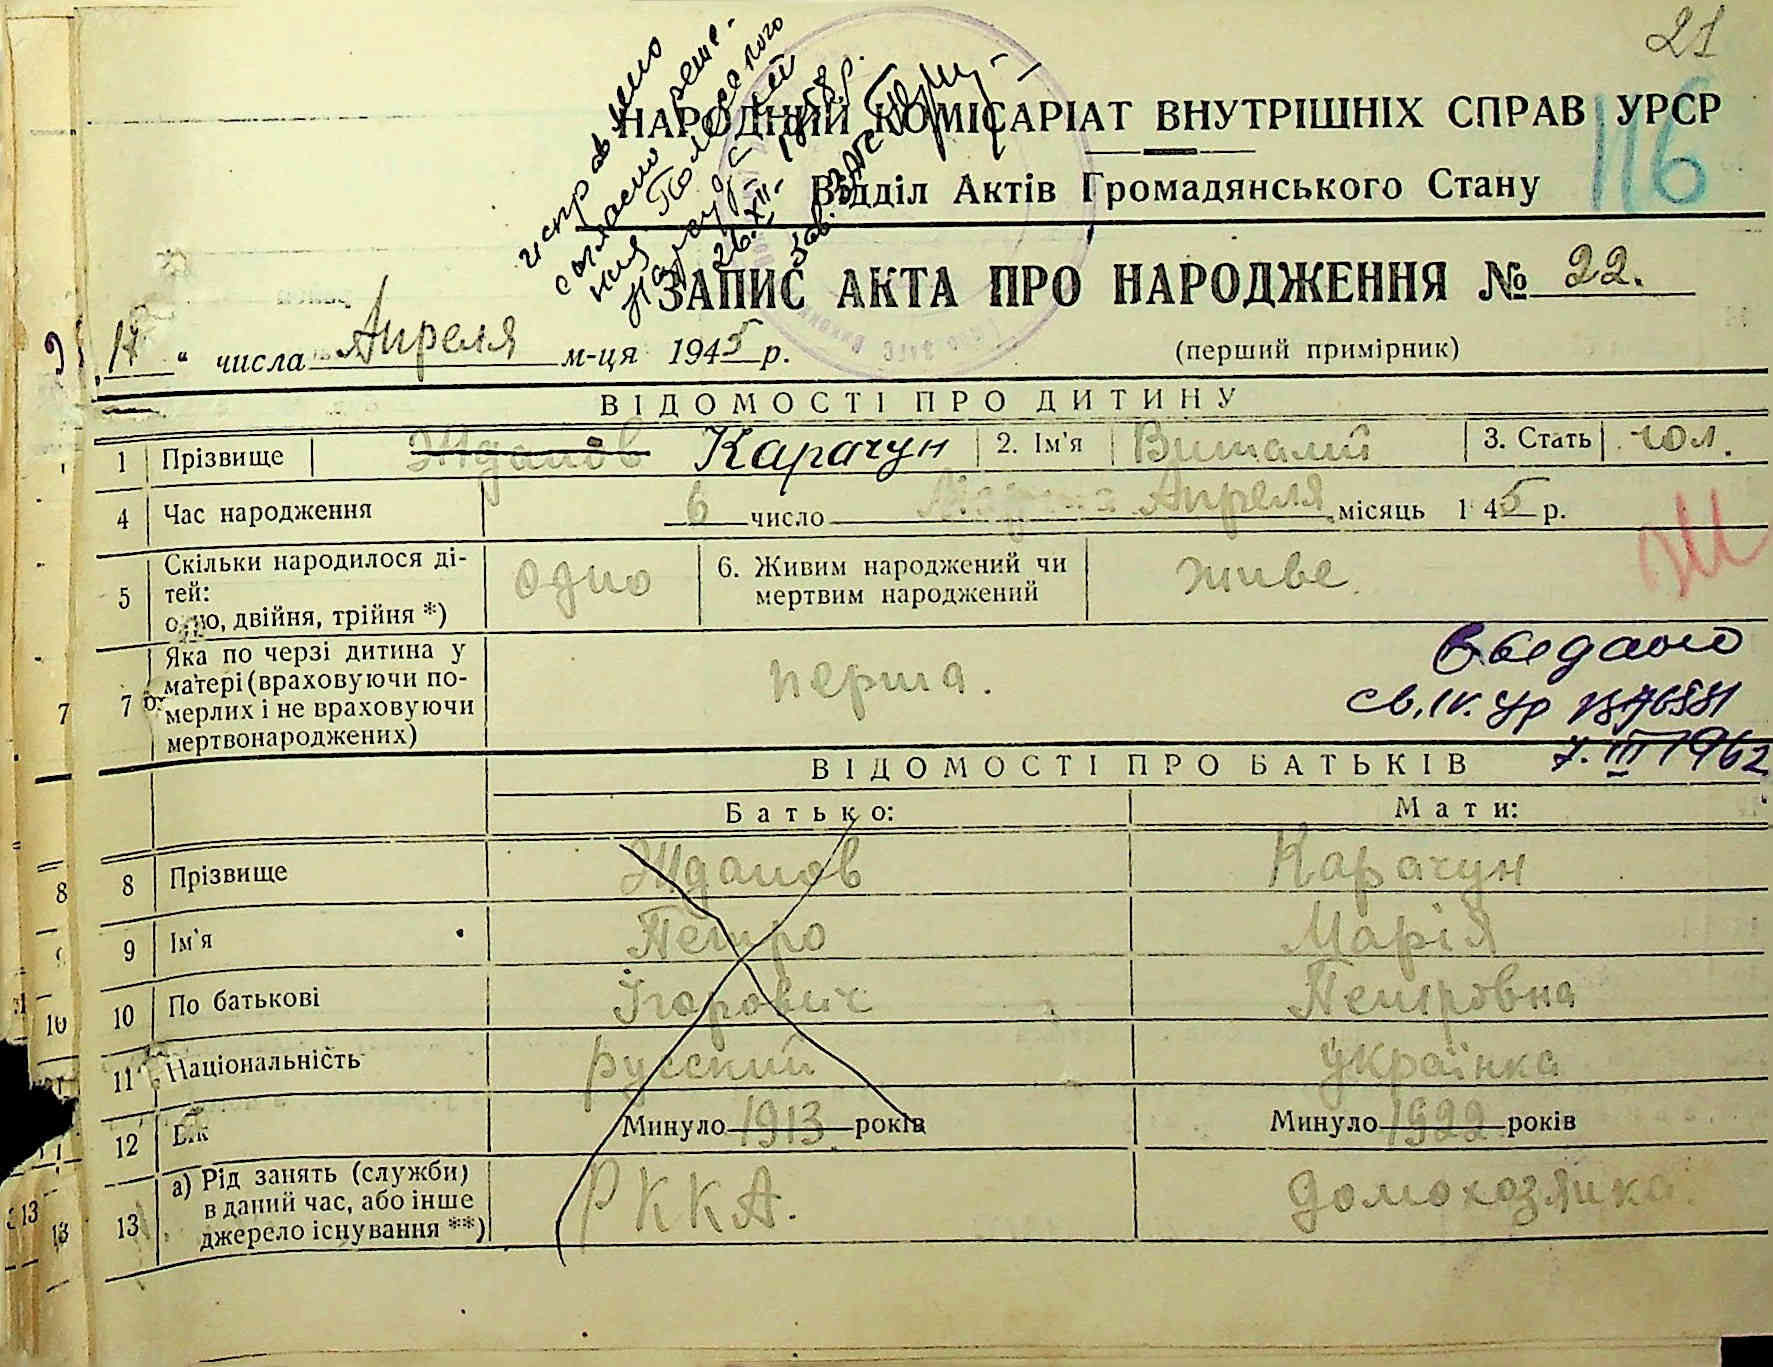 21
116
исправлено
согласно реше-
ния
26.XII-1958 р.
Зав. ЗАГС
НАРОДНІЙ КОМІСАРІАТ ВНУТРІШНІХ СПРАВ УРСР
Відділ Актів Громадянського Стану
ЗАПИС АКТА ПРО НАРОДЖЕННЯ № 22.
„ “ числа Апреля м-ця 1945 р.
(перший примірник)
ВІДОМОСТІ ПРО ДИТИНУ
1 Прізвище Жданов Карачун 2. Ім'я Виталий 3. Стать чол.
4 Час народження 6 число Апреля місяць 1945 р.
5 Скільки народилося ді-
тей:
одно, двійня, трійня *)
одно
6. Живим народжений чи
мертвим народжений
живе.
ЗМ
7 Яка по черзі дитина у
матері (враховуючи по-
мерлих і не враховуючи
мертвонароджених)
перша.
7. III 1962
ВІДОМОСТІ ПРО БАТЬКІВ
Батько: Мати:
8 Прізвище Жданов Карачун
9 Ім'я Петро Марія
10 По батькові Ігорович Петровна
11 Національність русский українка
12 Вік Минуло 1913 років Минуло 1922 років
13 а) Рід занять (служби)
в даний час, або інше
джерело існування **)
РККА. домохозяика.